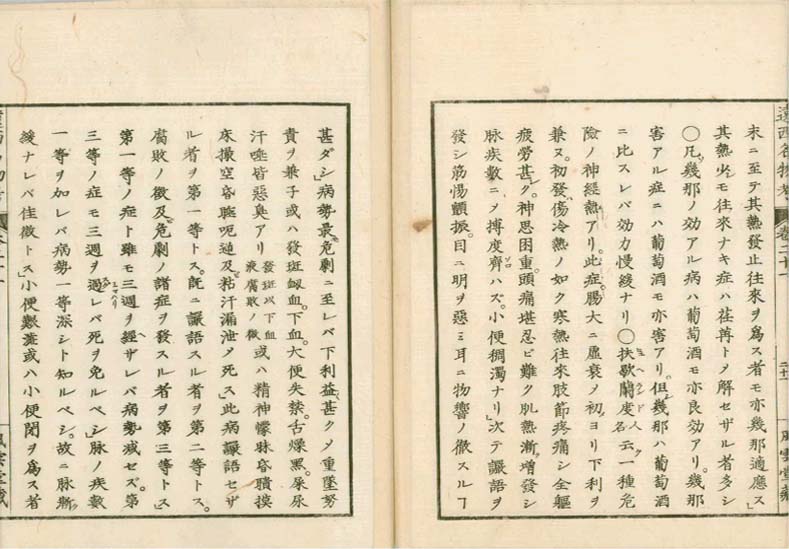 遠西名物考 卷二十一 二十一 風雲堂藏
末ニ至テ其熱發止往來ヲ爲ス者モ亦幾那適應ス」
其熱少モ往來ナキ症ハ荏苒トメ解セザル者多シ
○凡幾那ノ効アル病ハ葡萄酒モ亦良効アリ。幾那
害アル症ニハ葡萄酒モ亦害アリ。但幾那ハ葡萄酒
ニ比スレバ効力慢緩ナリ○扶歇蘭度人名云ク一種危
險ノ神經熱アリ。此症。腸大ニ虛衰ノ初ヨリ下利ヲ
兼ヌ。初發傷冷熱ノ如ク寒熱往來肢節疼痛シ全軀
疲勞甚ク。神思困重。頭痛堪忍ビ難ク肌熱漸々增發シ
脉疾數ニメ搏度齊ハズ。小便稠濁ナリ」次テ譫語ヲ
發シ筋惕顫振。目ニ明ヲ惡ミ耳ニ物響ノ徹スルヿ
甚ダシ」病勢最危劇ニ至レバ下利益甚クメ重墜努
責ヲ兼子或ハ發斑衂血。下血。大便失禁。舌燥黑。屎尿
汗唾皆惡臭アリ 發斑以下血液腐敗ノ徵 或ハ精神懞眛昏瞶摸
床撮空昏睡呃逆及粘汗漏泄メ死ス」此病譫語セザ
ル者ヲ第一等トス。既ニ譫語スル者ヲ第二等トス。
腐敗ノ徵及危劇ノ諸症ヲ發スル者ヲ第三等トス」
第一等ノ症ト雖モ三週ヲ經ザレバ病勢减セズ。第
三等ノ症モ三週ヲ過レバ死ヲ免ルベシ」脉ノ疾數
一等ヲ加レバ病勢一等添シト知ルベシ。故ニ脉漸々
緩ナレバ佳徵トス」小便數濃或ハ小便閉ヲ爲ス者